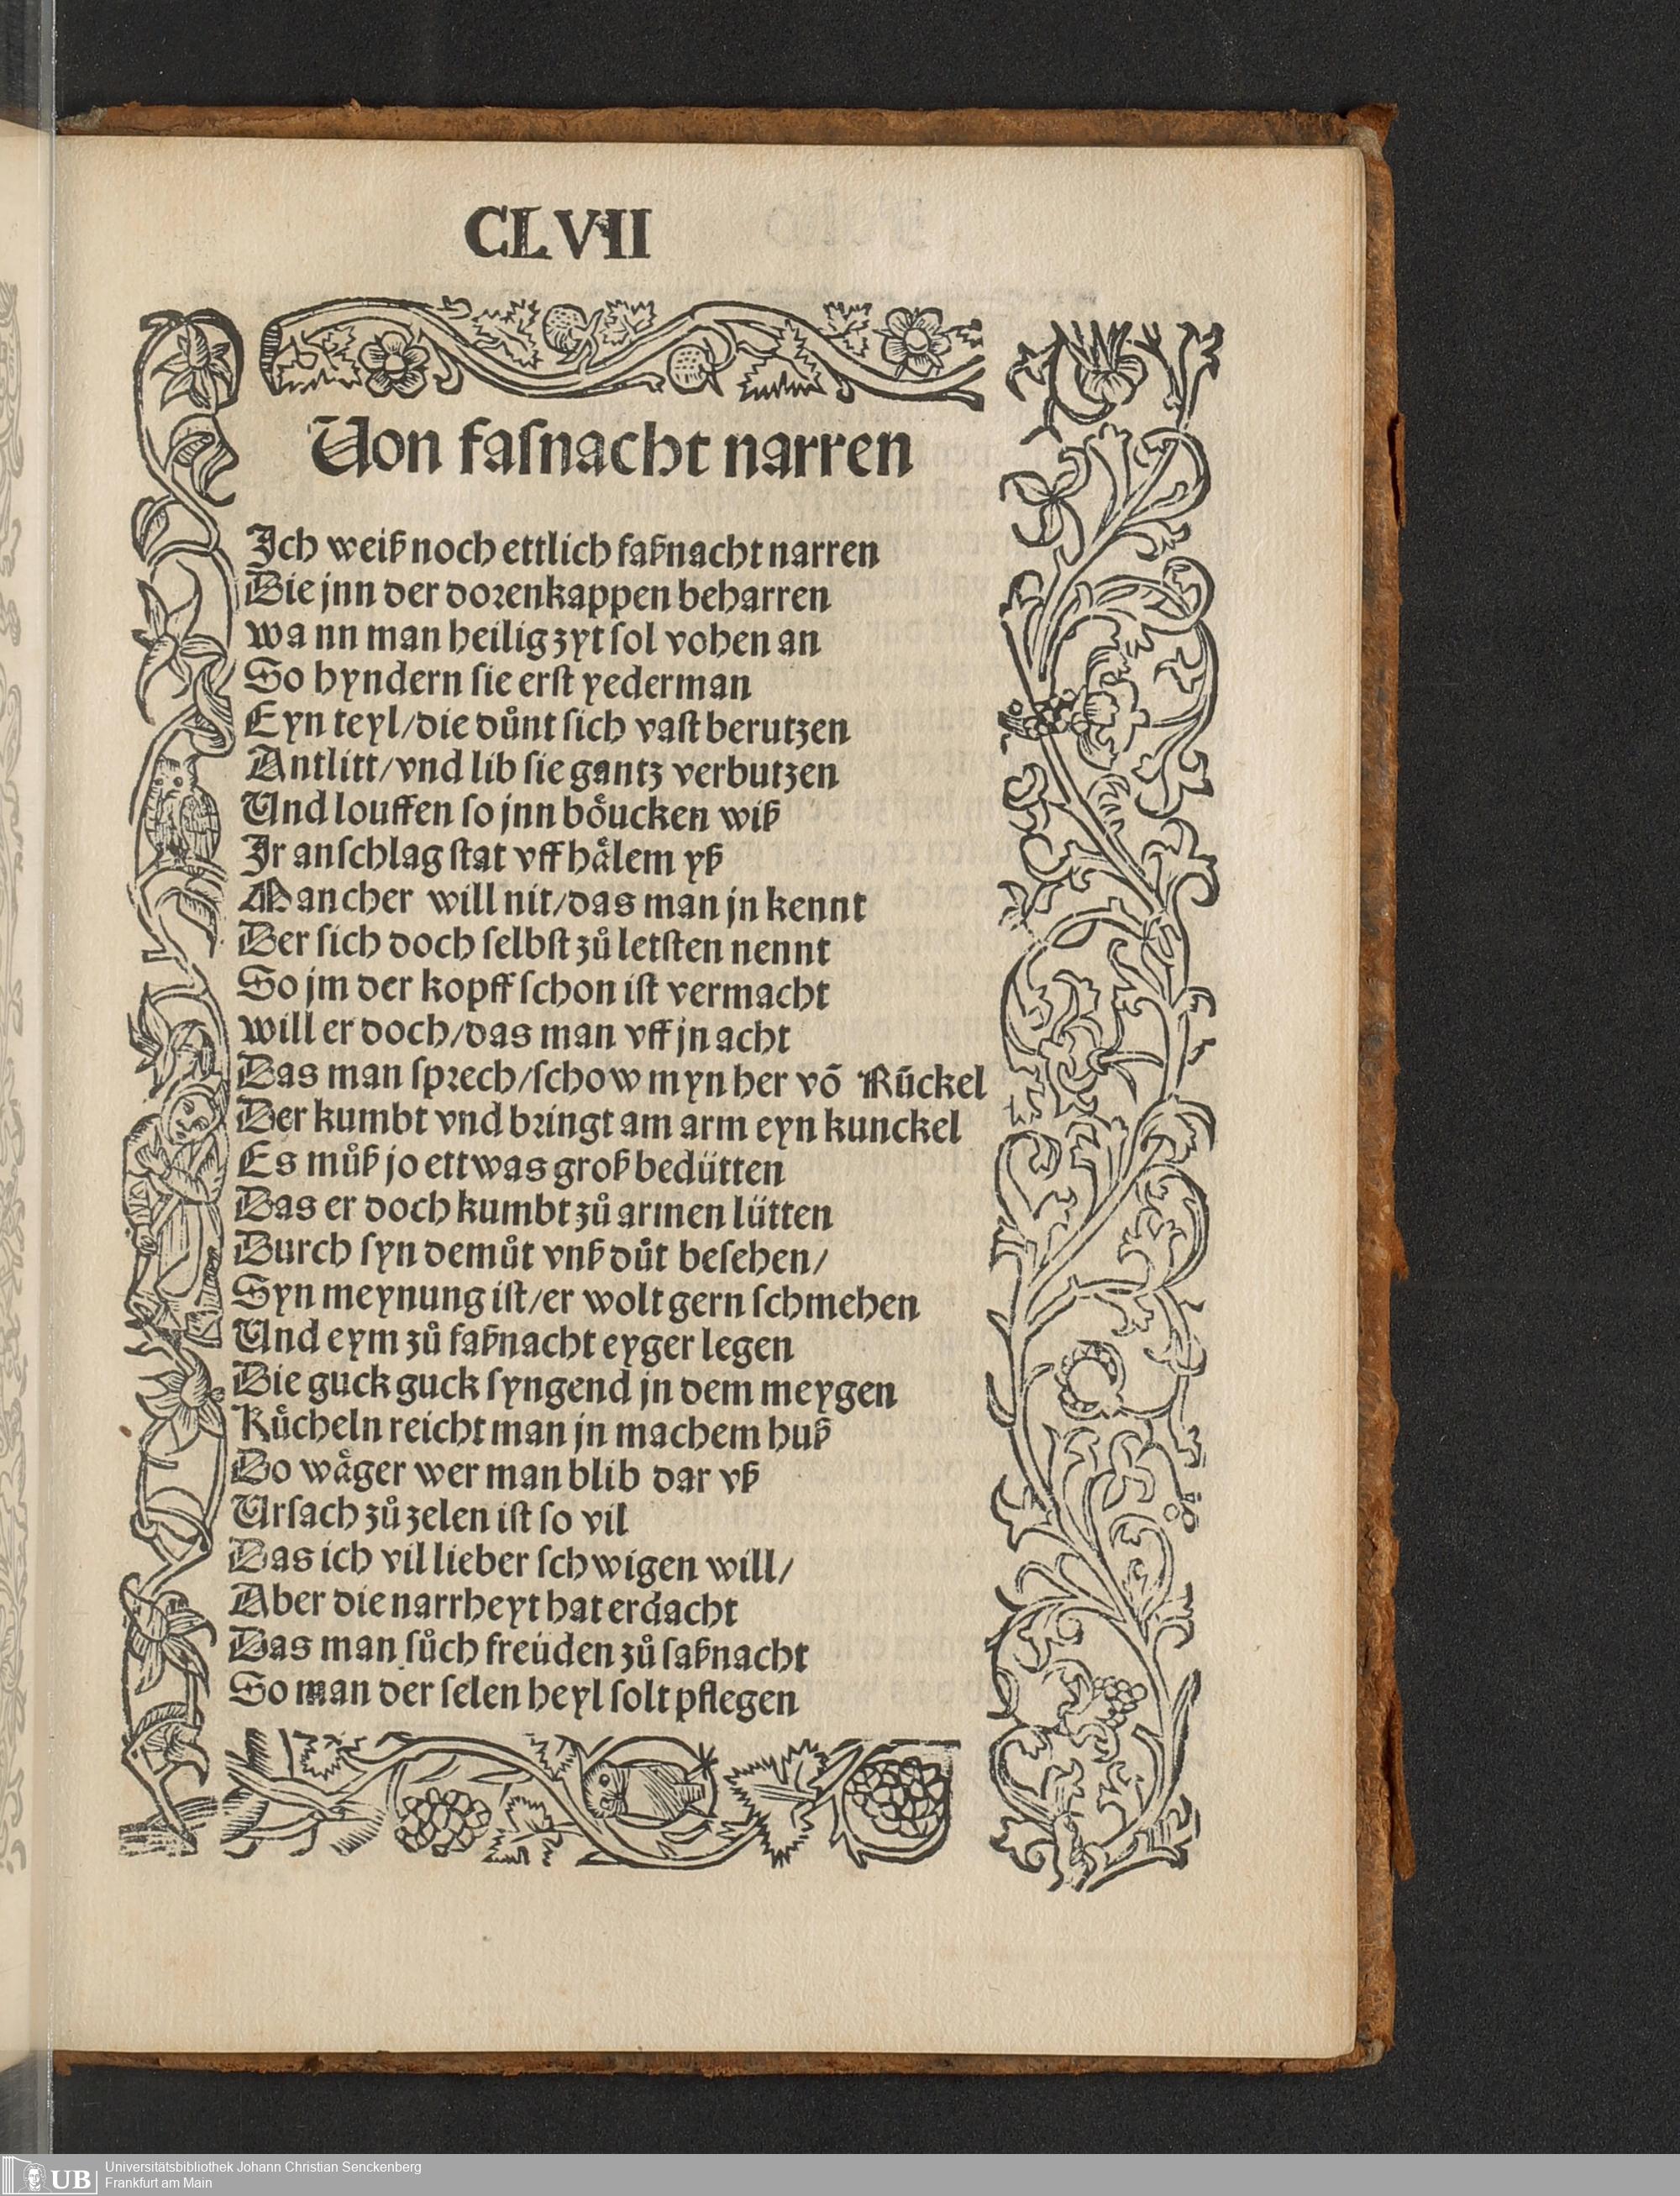 CLVII
Von faſnacht narren
Ich weiß noch ettlich faßnacht narren
Die jnn der dorenkappen beharren
wa nn man heilig zyt ſol vohen an
So hyndern ſie erſt yederman
Eyn teyl/die duͦnt ſich vaſt berutzen
Antlitt/vnd lib ſie gantz verbutzen
Und louffen ſo jnn boͤucken wiß
Ir anſchlag ſtat vff haͤlem yß
Mancher will nit/das man jn kennt
Der ſich doch ſelbſt zuͦ letſten nennt
So jm der kopff ſchon iſt vermacht
will er doch/das man vff jn acht
Das man ſprech/ſchow myn her vō Rūckel
Der kumbt vnd bringt am arm eyn kunckel
Es muͦß jo ettwas groß bedütten
Das er doch kumbt zuͦ armen lütten
Durch ſyn demuͦt vnß duͦt beſehen/
Syn meynung iſt/er wolt gern ſchmehen
Und eym zuͦ faßnacht eyger legen
Die guck guck ſyngend jn dem meygen
Kuͤcheln reicht man jn machem huß
Do waͤger wer man blib dar vß
Urſach zuͦ zelen iſt ſo vil
Das ich vil lieber ſchwigen will/
Aber die narrheyt hat erdacht
Das man ſuͦch freüden zuͦ ſaßnacht
So man der ſelen heyl ſolt pflegen
UB
Universitätsbibliothek Johann Christian Senckenberg
Frankfurt am Main